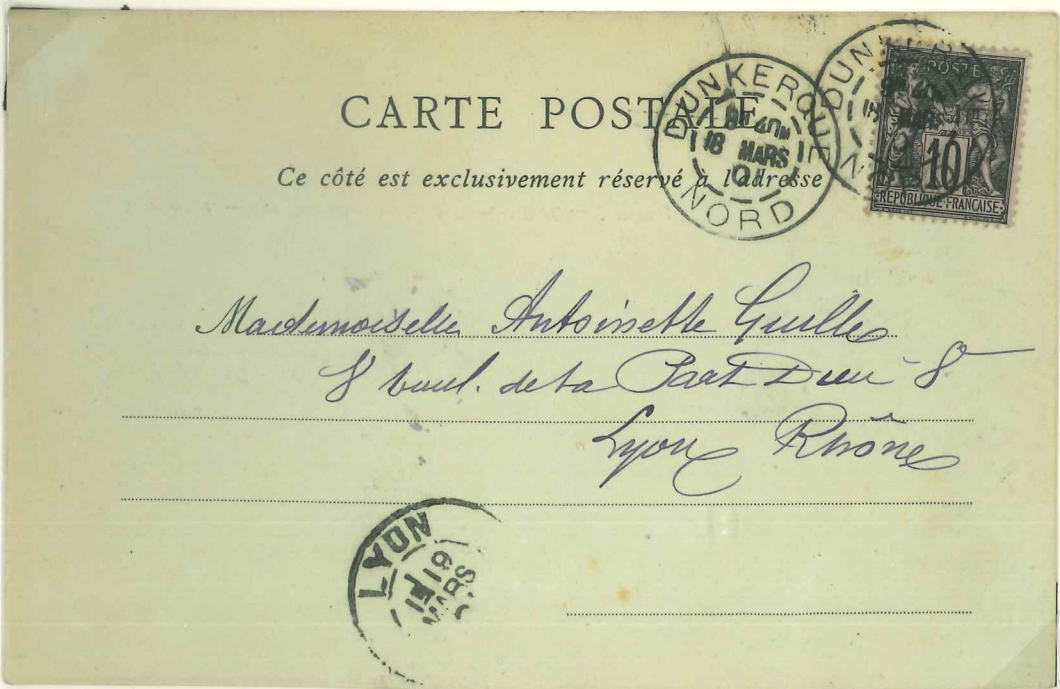 CARTE POSTALE
Ce côté est exclusivement réservé à l'adresse
DUNKERQUE
18 MARS
01
NORD
DUNKERQUE
18 MARS
POSTE
10
REPUBLIQUE FRANÇAISE
Mademoiselle Antoinette Guille
8 boul. de la Part Dieu 8
Lyon Rhône
LYON
19
MARS